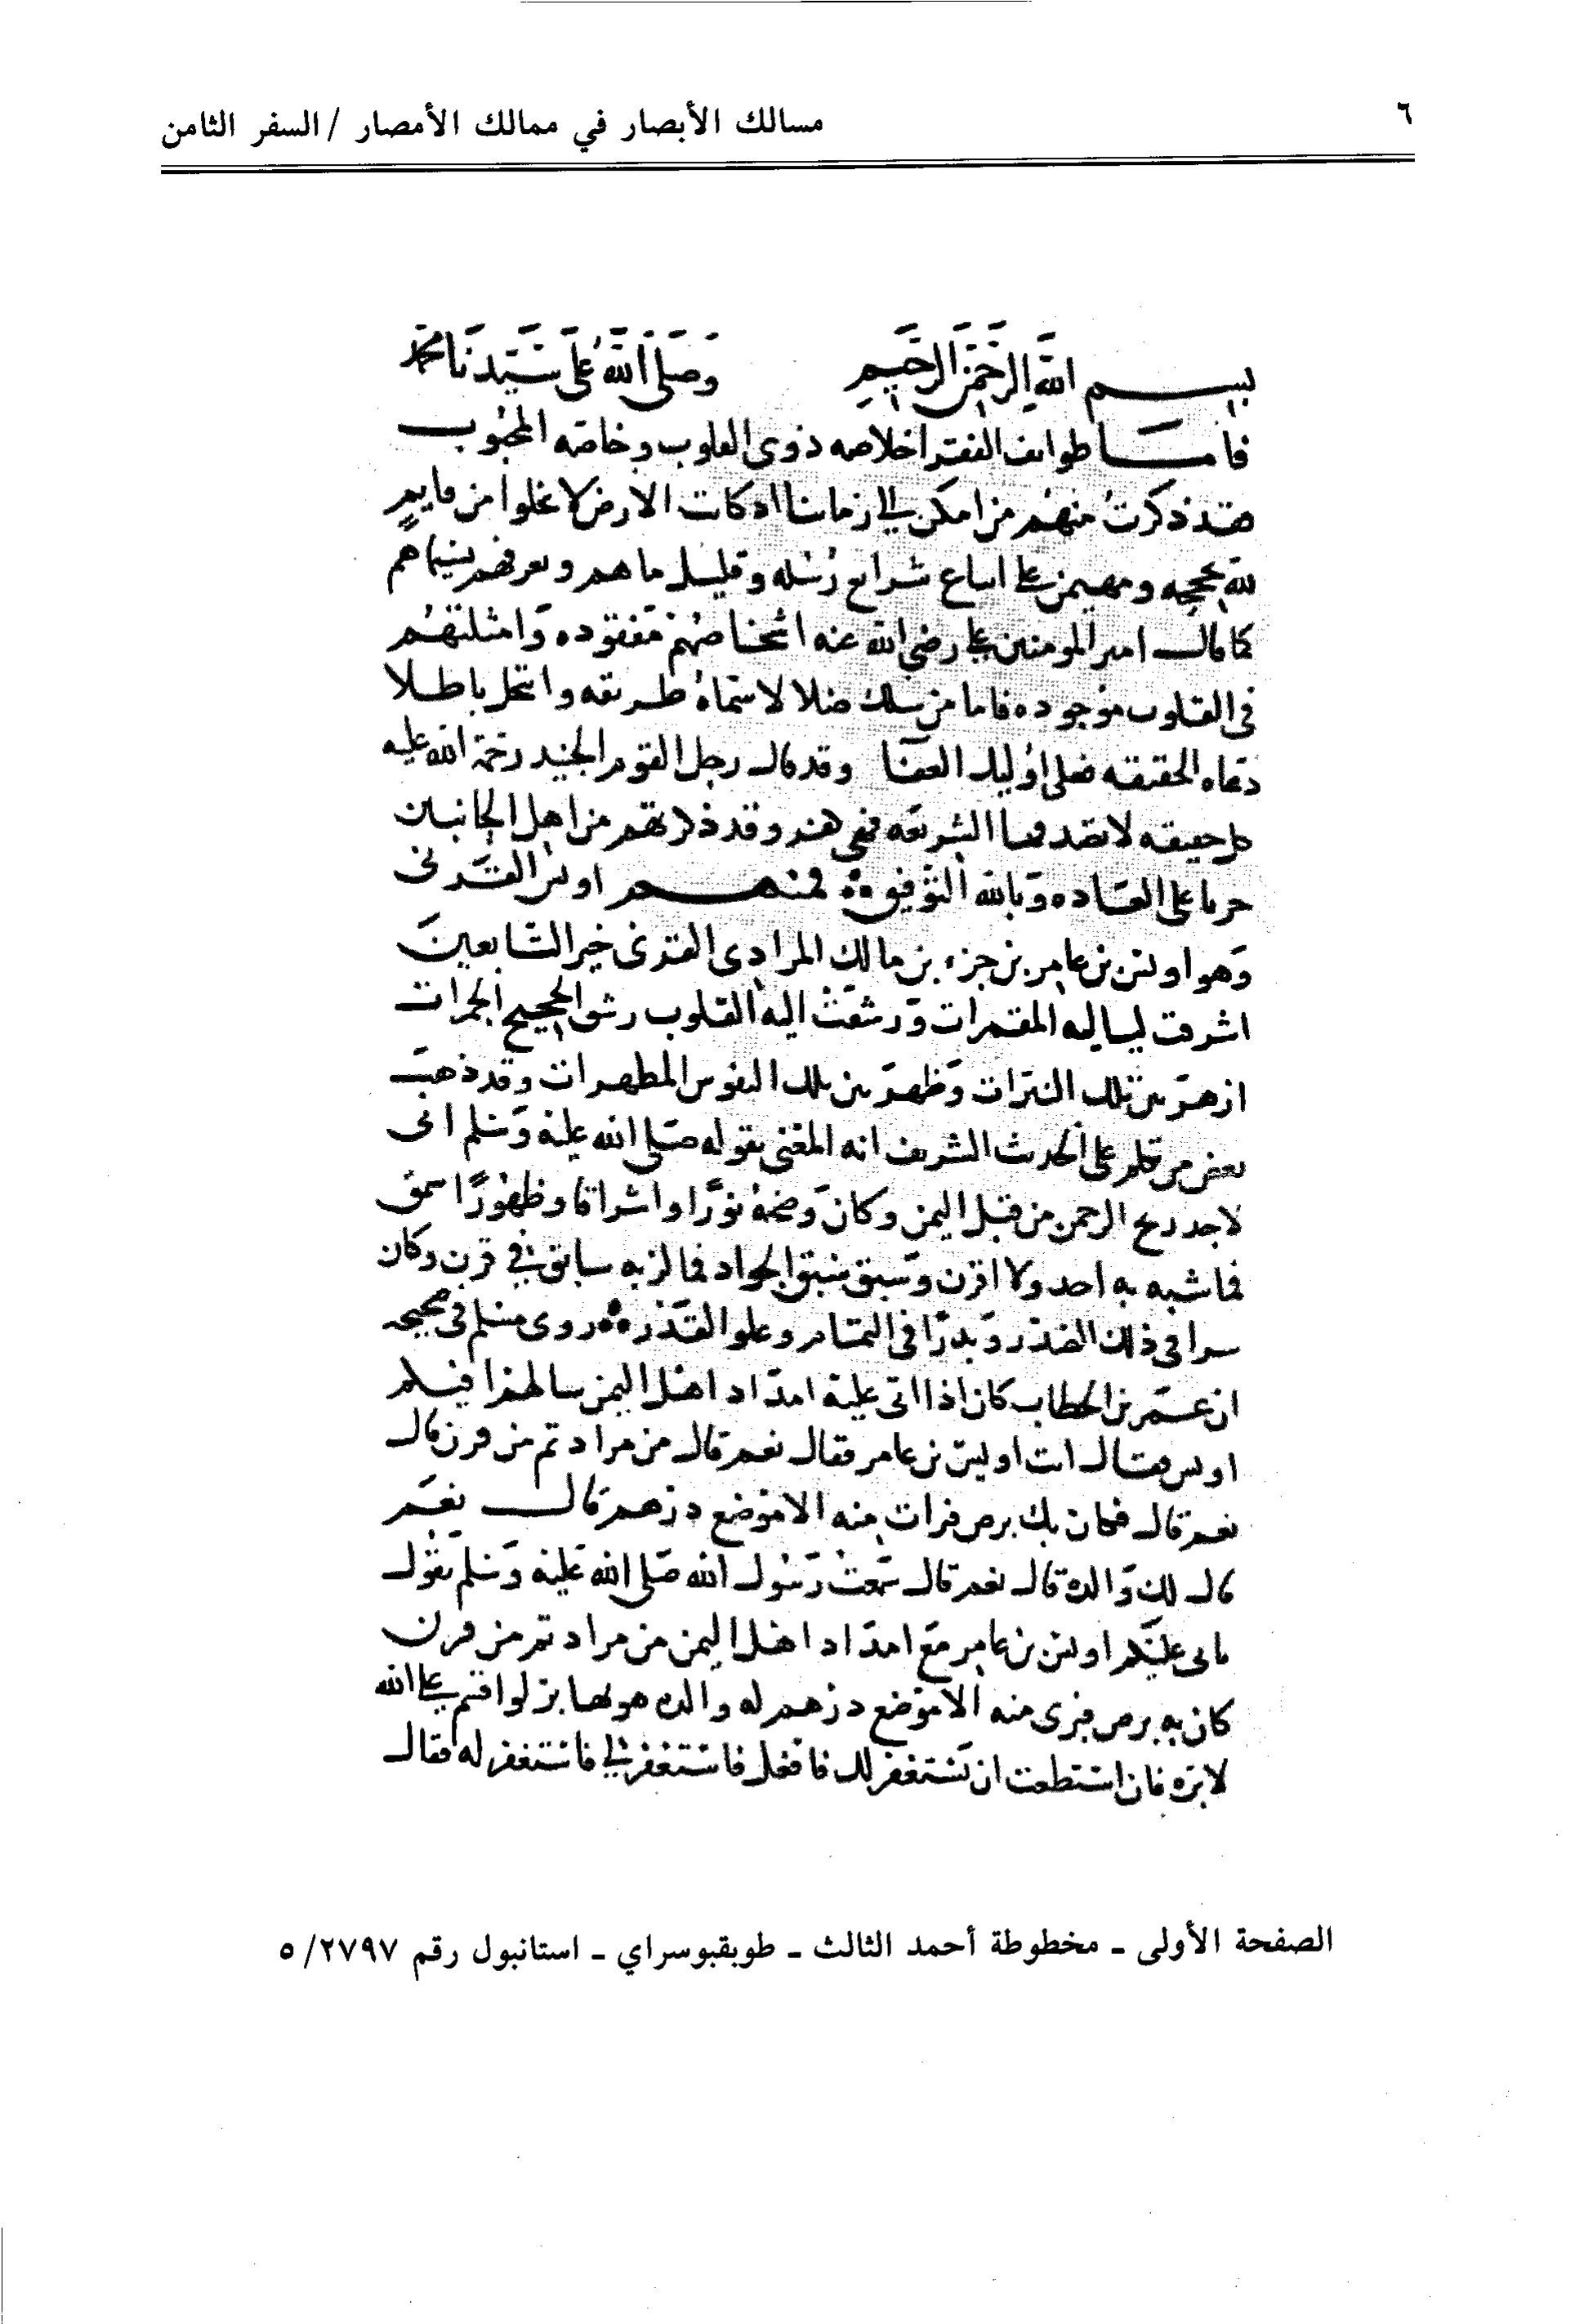 ٦
مسالك الأبصار في ممالك الأمصار / السفر الثامن
بسم الله الرحمن الرحيم وصلى الله على سيدنا محمد
فاما طوائف الفقرا خلاصه ذوى القلوب وخاصه المحبوب
فقد ذكرت منهم من امكن الى زماننا اذ كانت الارض لا تخلوا من قايم
لله بحججه ومهيمن على اتباع شرايع رسله وقليل ما هم وتعرفهم بسيماهم
كما قال امير المومنين على رضى الله عنه اشخاصهم مفقوده وامثلتهم
فى القلوب موجوده فاما من سلك ضلالا سماه طريقه وانتحل باطلا
دعاه الحقيقه فعلى اوليك العفا وقد قال رجل القوم الجنيد رحمة الله عليه
كل حقيقه لا الشريعه فهى وقد ذكرتهم من اهل الجانبين
جريا على العاده وبالله التوفيق فمنهم اويس القرنى
وهو اويس بن عامر بن جزء بن مالك المرادى القرنى خير التابعين
اشرقت لياليه المقمرات ورشقت اليه القلوب رشق الحجيح الجمرات
ازهر بين تلك النيرات وظهر بين تلك النفوس المطهرات وقد ذهب
بعض من تكلم على الحديث الشريف انه المعنى بقوله صلى الله عليه وسلم انى
لاجد ريح الرحمن من قبل اليمن وكان وضحه نورا واشراقا وظهورا سمق
فما شبه به احد ولا اقرن وسبق سبق الجواد فما لز به سابق فى قرن وكان
سرا فى ذلك الصدر وبدرا فى التمام وعلو القدر روى مسلم فى صحيحه
ان عمر بن الخطاب كان اذا اتى عليه امداد اهل اليمن سالهم افيكم
اويس فقال انت اويس بن عامر فقال نعم قال من مراد ثم من قرن قال
نعم قال فكان بك برص فبرات منه الا موضع درهم قال نعم
قال لك والده قال نعم قال سمعت رسول الله صلى الله عليه وسلم يقول
ياتى عليكم اويس بن عامر مع امداد اهل اليمن من مراد ثم من قرن
كان به برص فبرى منه الا موضع درهم له والده هو بها بر لو اقسم على الله
لابره فان استطعت ان يستغفر لك فافعل فاستغفر لى فاستغفر له فقال
الصفحة الأولى - مخطوطة أحمد الثالث - طوبقبوسراي - استانبول رقم ٢٧٩٧/ ٥